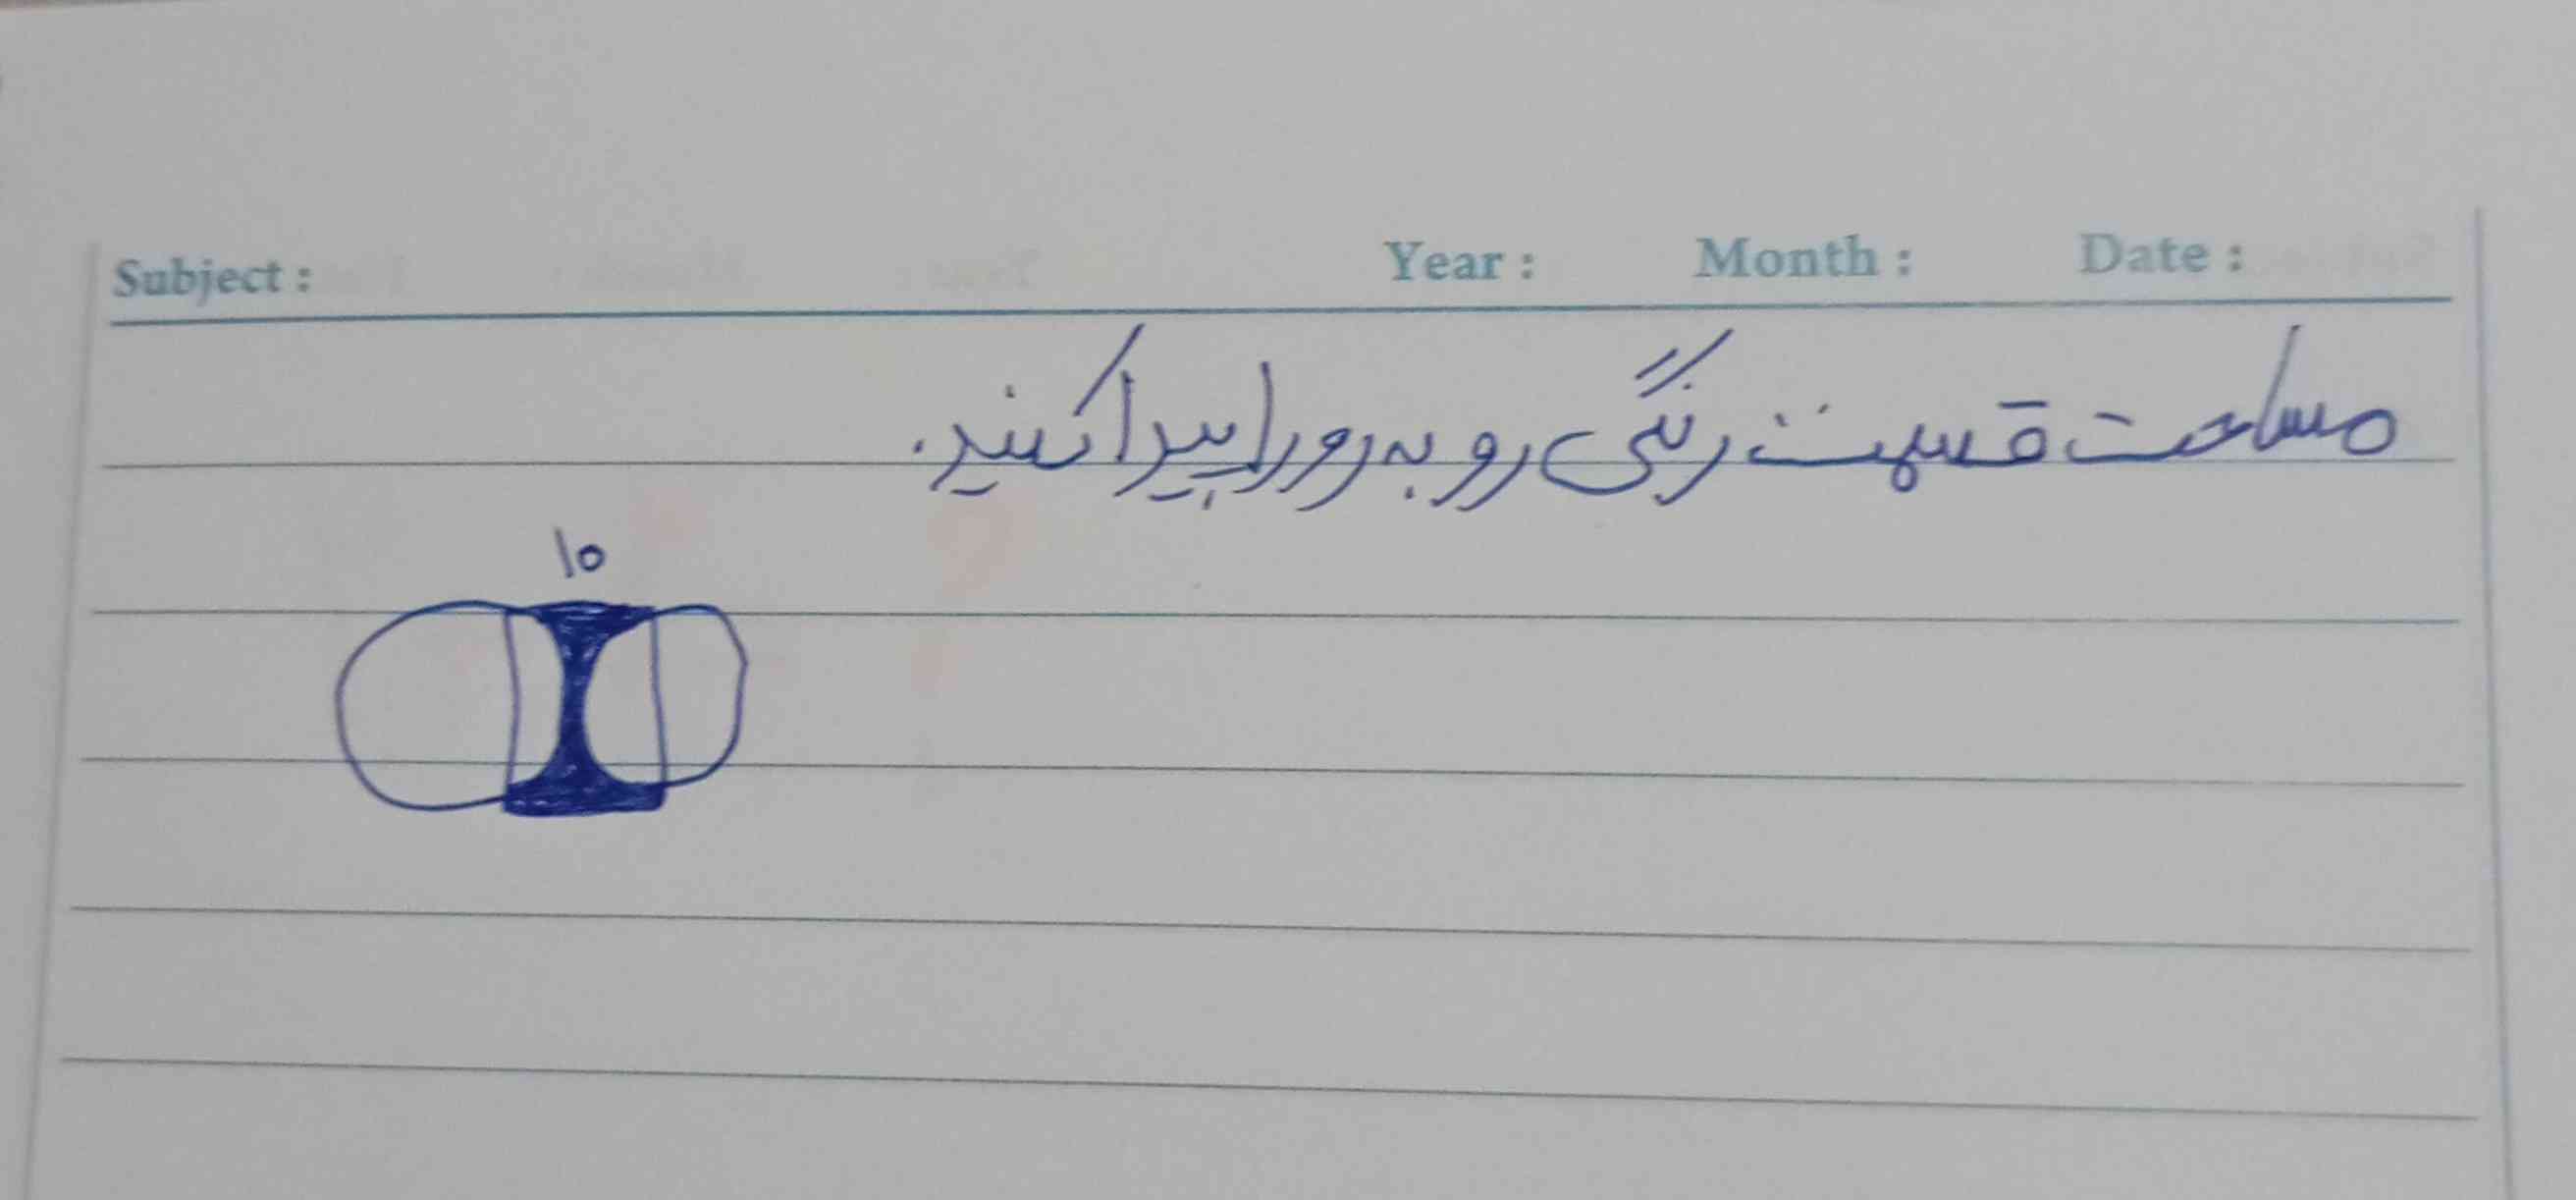 Subject : Year : Month : Date :
مساحت قسمت رنگی رو به رو را پیدا کنید.
۱۰